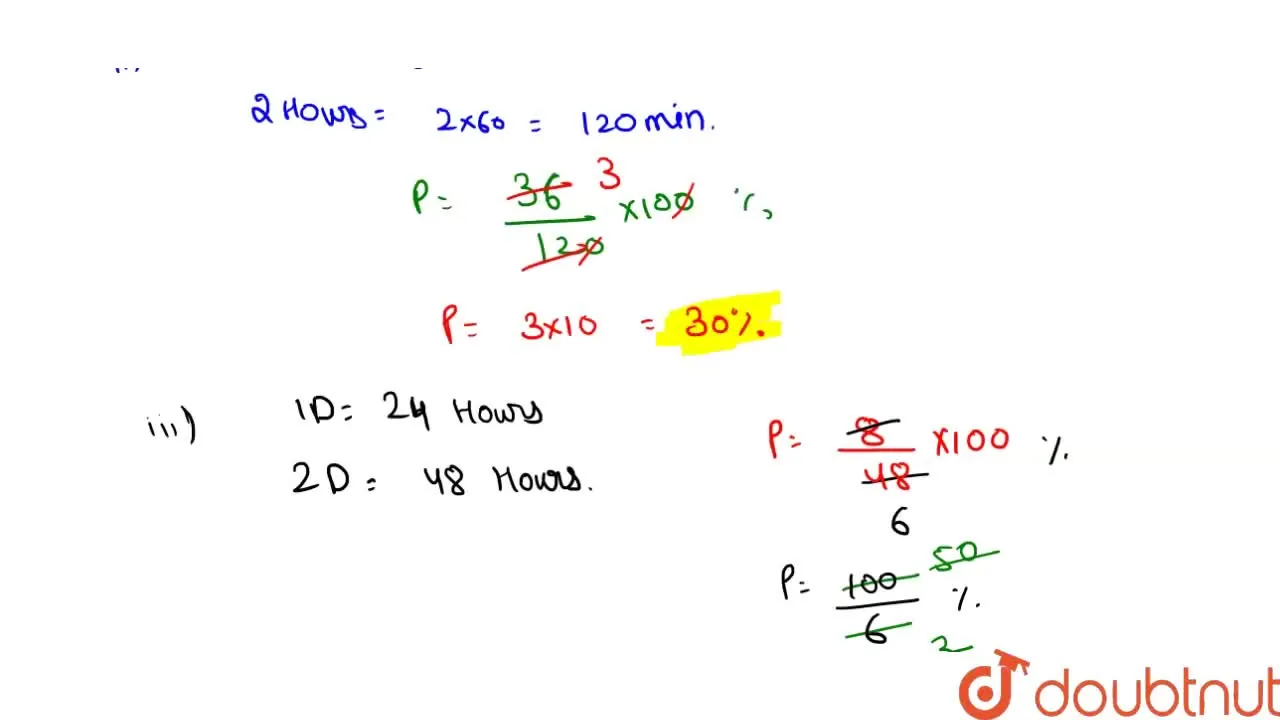 2 Hours = 2×60 = 120 min.
P = 36 3
120 ×100 %
P = 3×10 = 30%.
iii) 1D = 24 Hours
2D = 48 Hours.
P = 8
48 ×100 %
6
P = 100 50
6 %
2
doubtnut